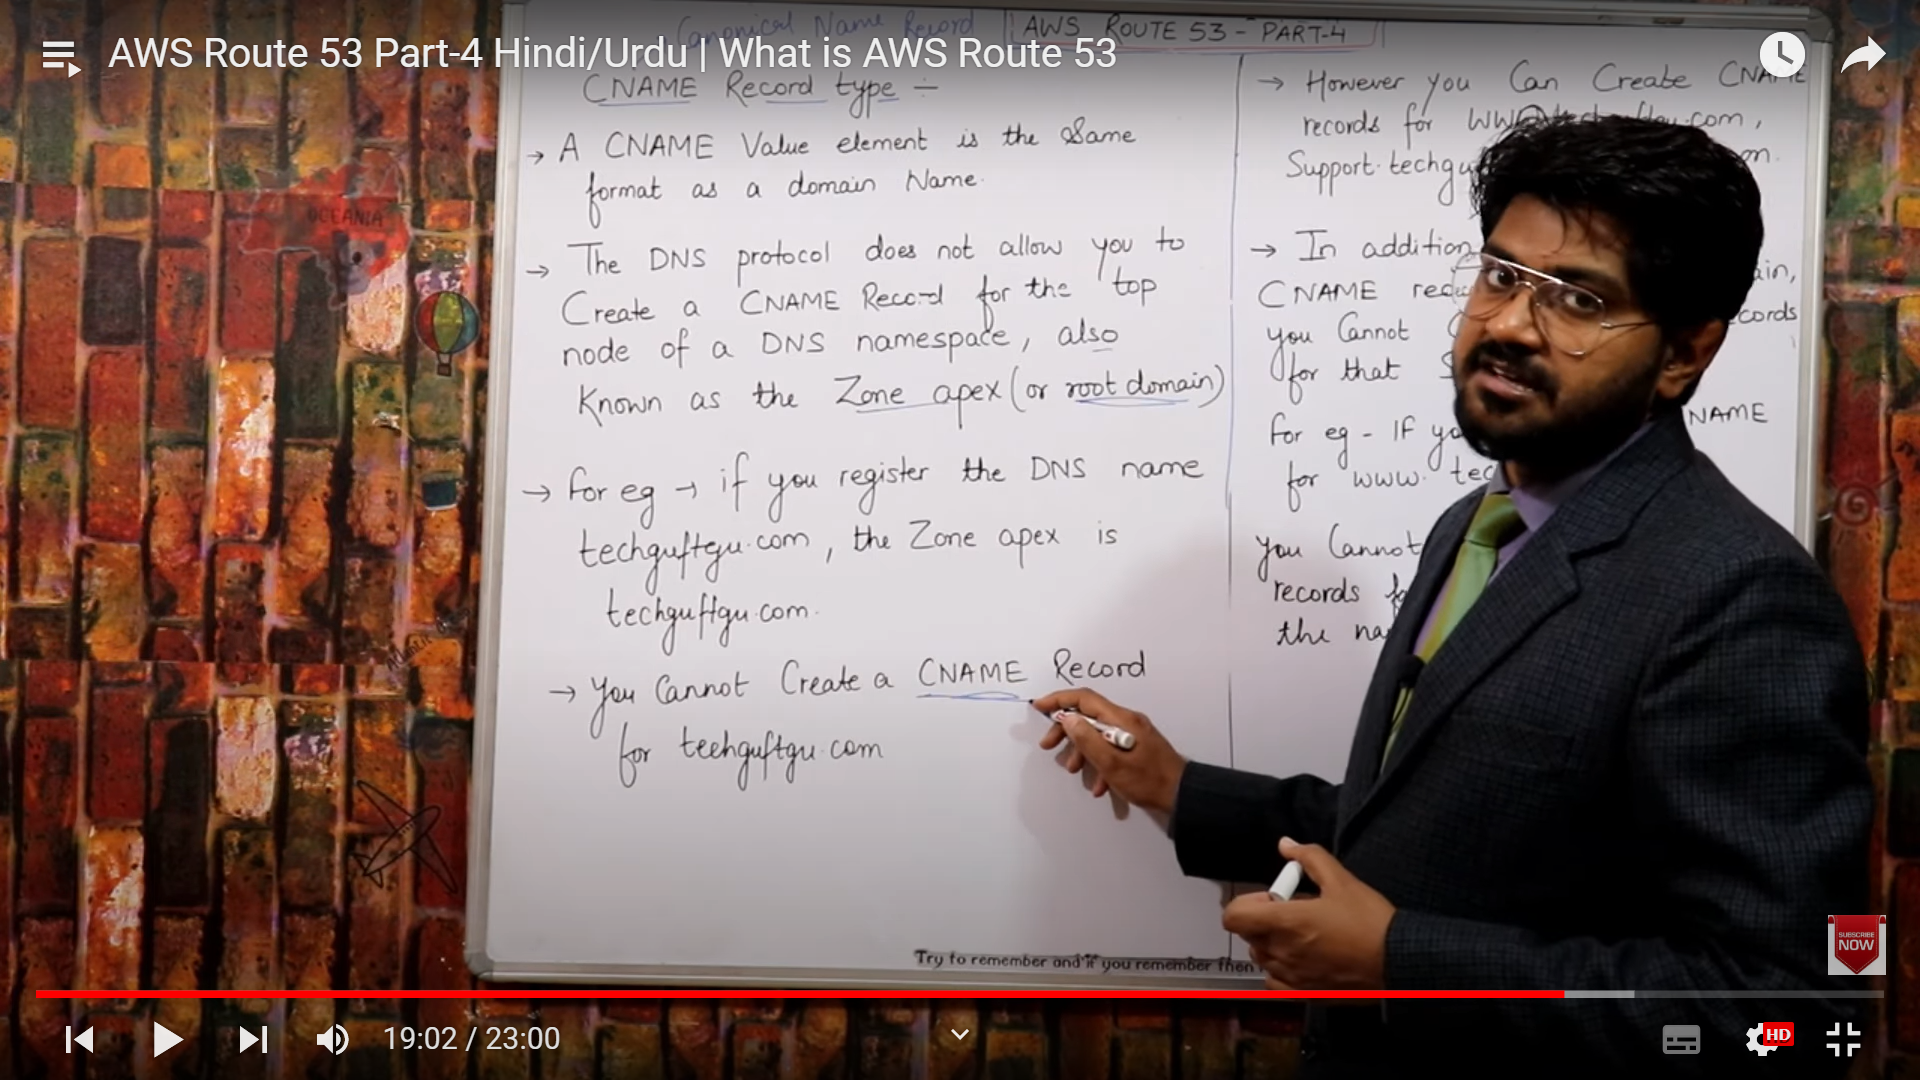 AWS Route 53 Part-4 Hindi/Urdu | What is AWS Route 53
Canonical Name Record
AWS ROUTE 53 - PART-4
CNAME Record type :-
→ A CNAME Value element is the Same
format as a domain Name.
→ The DNS protocol does not allow you to
Create a CNAME Record for the top
node of a DNS namespace, also
Known as the Zone apex (or root domain)
→ For eg → if you register the DNS name
techguftgu.com, the Zone apex is
techguftgu.com.
→ You Cannot Create a CNAME Record
for techguftgu.com
→ However you Can Create CNAME
records for
.com,
Support.
→ In addition
CNAME
you Cannot
records
for that
For eg - IF
CNAME
for www.
You Cannot
records
the
OCEANIA
Try to remember and if you remember then
SUBSCRIBE
NOW
19:02 / 23:00
HD